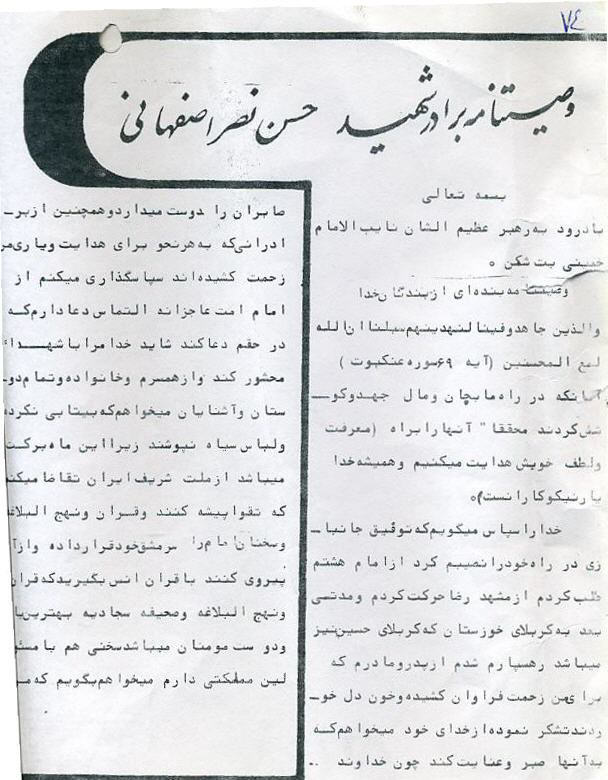 ٧٤
وصیتنامه برادر شهید حسن نصر اصفهانی
بسمه تعالی
بادرود به رهبر عظیم الشان نایب الامام
خمینی بت شکن ٠
وصیت نامه بنده ای از بندگان خدا
والذین جاهدوفینا لنهدینهم سبلنا ان الله
لمع المحسنین (آیه ۶۹ سوره عنکبوت )
آنانکه در راه مابجان ومال جهدوکو-
شش کردند محققا" آنها را براه (معرفت
ولطف خویش هدایت میکنیم وهمیشه خدا
یارنیکوکارانست)٠
خدا را سپاس میگویم که توفیق جانبا-
زی در راه خود را نصیبم کرد ازامام هشتم
طلب کردم ازمشهد رضا حرکت کردم ومدتی
بعد به کربلای خوزستان که کربلای حسین نیز
میباشد رهسپارم شدم ازپدرومادرم که
برای من زحمت فراوان کشیده وخون دل خو-
ردندتشکر نموده ازخدای خود میخواهم که
به آنها صبر وعنایت کند چون خداوند
صابران را دوست میدارد وهمچنین ازبر-
ادرانی که به هرنحو برای هدایت ویاری من
زحمت کشیده اند سپاسگذاری میکنم از
امام امت عاجزانه التماس دعا دارم که
در حقم دعا کند شاید خدا مرا با شهداء
محشور کند وازهمسرم وخانواده وتمام دو-
ستان وآشنایان میخواهم که بیتابی نکرده
ولباس سیاه نپوشند زیرا این ماه برکت
میباشد ازملت شریف ایران تقاضا میکنم
که تقوا پیشه کنند وقران ونهج البلاغه
وسخنان امام را سرمشق خود قرارداده وازآ
پیروی کنند باقران انس بگیرید که قران
ونهج البلاغه وصحیفه سجادیه بهترین یا
ودوست مومنان میباشد سخنی هم با مسئو
لین مملکتی دارم میخواهم بگویم که